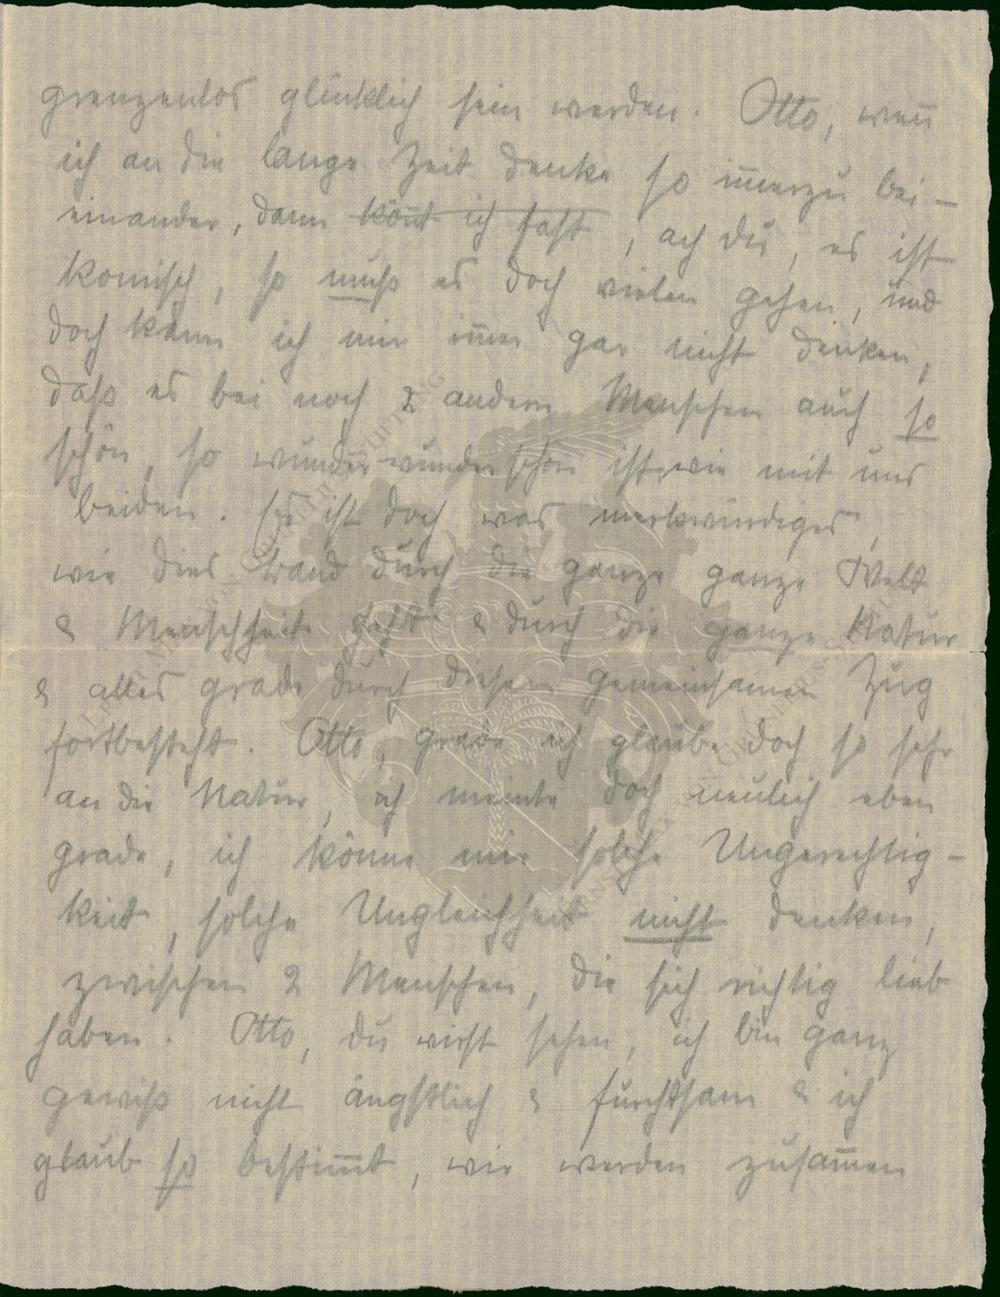 grenzenlos glücklich sein werden. Otto, wen̄
ich an die lange Zeit denke so im̄erzu bei-
einander, dann kön̄t ich fast, ach du, es ist
komisch, so muß es doch vielen gehen, und
doch kann ich mir im̄er gar nicht denken,
daß es bei noch 2 andern Menschen auch so
schön, so wunder wunder schön ist, wie mit uns
beiden. Es ist doch was merkwürdiges,
wie dies Band durch die ganze ganze Welt
& Menschheit geht & durch die ganze Natur
& alles grade durch diesen gemeinsamen Zug
fortbesteht. Otto, grade ich glaube doch so sehr
an die Natur, ich meinte doch neulich eben
grade, ich könne mir solche Ungerechtig-
keit, solche Ungleichheit nicht denken,
zwischen 2 Menschen, die sich richtig lieb
haben. Otto, du wirst sehen, ich bin ganz
gewiß nicht ängstlich & furchtsam & ich
glaub so bestim̄t, wir werden zusam̄en